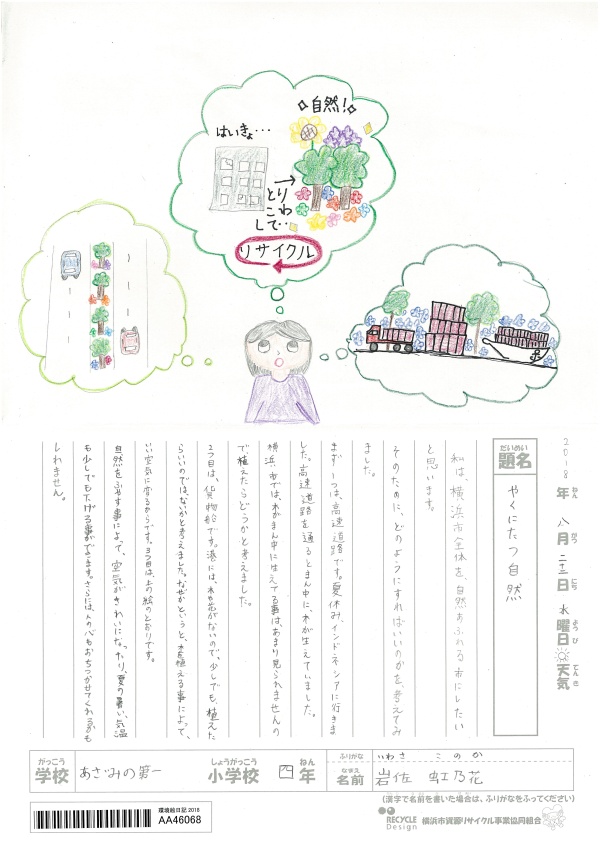 はいきょ…
自然!
とり
こわ
して…
リサイクル
2018年ねん 八月がつ 二十二日にち 水曜日ようび 天気てんき
だいめい
題名
やくにたつ自然
私は、横浜市全体を、自然あふれる市にしたい
と思います。
そのために、どのようにすればいいのかを、考えてみ
ました。
まず一つは、高速道路です。夏休み、インドネシアに行きま
した。高速道路を通るとまん中に、木が生えていました。
横浜市では、木がまん中に生えてる事は、あまり見られませんの
で植えたらどうかと考えました。
2つ目は、貨物船です。港には、木や花がないので、少しでも、植えた
らいいのではないかと考えました。なぜかというと、木を植える事によって、
いい空気に変るからです。3つ目は、上の絵のとおりです。
自然をふやす事によって、空気がきれいになったり、夏の暑い、気温
も少しでも下げる事ができます。さらには、人の心もおちつかせてくれるかも
しれません。
がっこう
学校
あざみの第一
しょうがっこう
小学校
四
ねん
年
ふりがな
いわさ このか
なまえ
名前
岩佐 虹乃花
(漢字で名前を書いた場合は、ふりがなをふってください)
環境絵日記 2018
AA46068
RECYCLE
Design
横浜市資源リサイクル事業協同組合